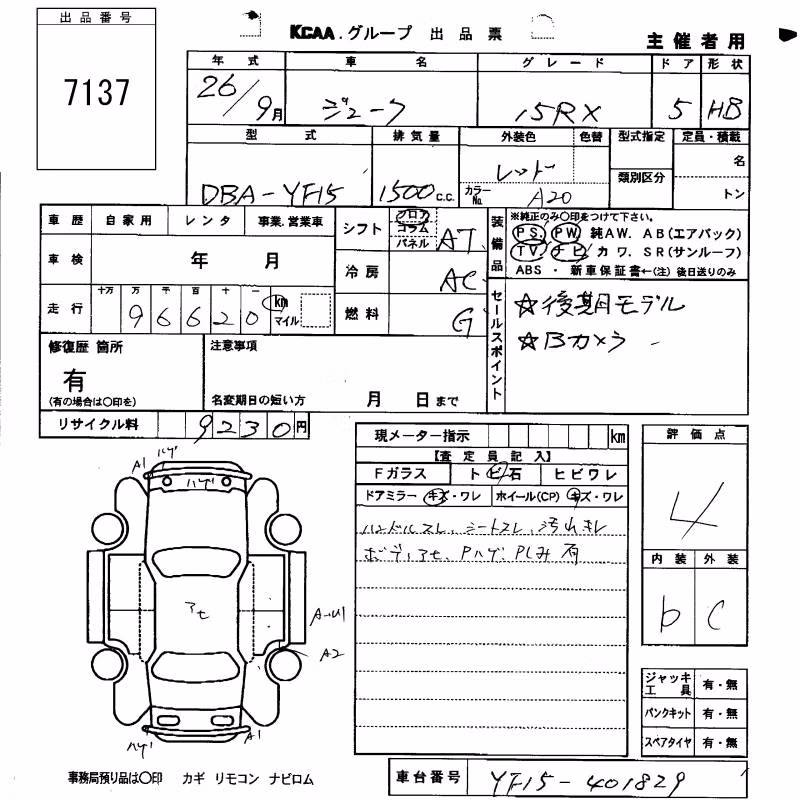 出品番号
7137
KCAA.グループ 出品票
主催者用
年式 車名 グレード ドア 形状
26/9月 ジューク 15RX 5 HB
型式 排気量 外装色 色替 型式指定 定員・積載
DBA-YF15 1500c.c. レッド 類別区分 名
カラーNo. A20 トン
車歴 自家用 レンタ 事業.営業車
車検 年 月
走行 十万 万 千 百 十 一 km マイル
96620
シフト フロア コラム パネル AT
冷房 AC
燃料 G
装備品
※純正のみ〇印をつけて下さい。
PS. PW. 純AW. AB(エアバック)
TV. ナビ. カワ. SR(サンルーフ)
ABS・新車保証書←(注)後日送りのみ
セールスポイント
☆後期モデル
☆Bカメラ
修復歴 箇所
有
(有の場合は〇印を)
注意事項
名変期日の短い方 月 日まで
リサイクル料 9230円
現メーター指示 km
【査定員記入】
Fガラス トビ石 ヒビワレ
ドアミラー キズ・ワレ ホイール(CP) キズ・ワレ
ハンドルスレ、シートスレ、汚れキレ
ボディアセ、Pハゲ、Pしみ有
評価点
4
内装 外装
b C
ジャッキ工具 有・無
パンクキット 有・無
スペアタイヤ 有・無
A1 ハゲ
ハゲ
アセ
A-U1
A2
ハゲ A1
事務局預り品は〇印 カギ リモコン ナビロム
車台番号 YF15-401829